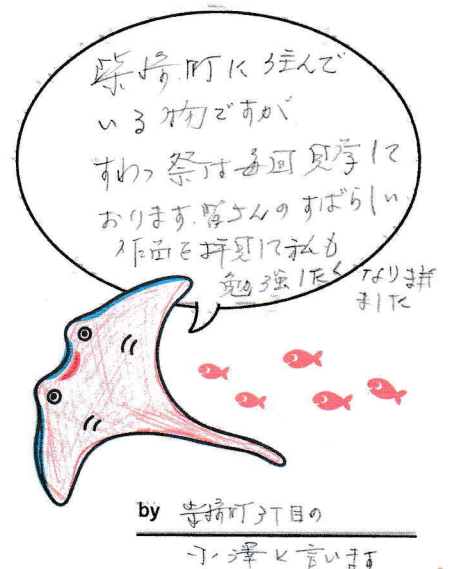 柴崎町に住んで
いる物ですが
すわっ祭は毎回見学して
おります.皆さんのすばらしい
作品を拝見して私も
勉強したくなりま
ました
by 柴崎町3丁目の
小澤と言います